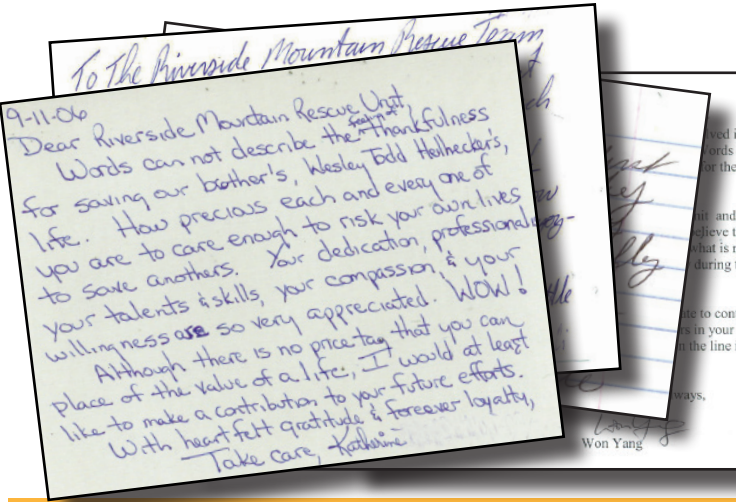 To The Riverside Mountain Rescue Team
9-11-06
Dear Riverside Mountain Rescue Unit,
Words can not describe the feeling of thankfulness
for saving our brother's, Wesley Todd Heilhecker's,
life. How precious each and every one of
you are to care enough to risk your own lives
to save anothers. Your dedication, professional
your talents & skills, your compassion, & your
willingness are so very appreciated. WOW!
Although there is no price tag that you can
place of the value of a life, I would at least
like to make a contribution to your future efforts.
With heart felt gratitude & foreever loyalty,
Take care, Katherine
ords
or the
it and
elieve t
what is
during t
te to con
rs in your
n the line i
ways,
Won Yang